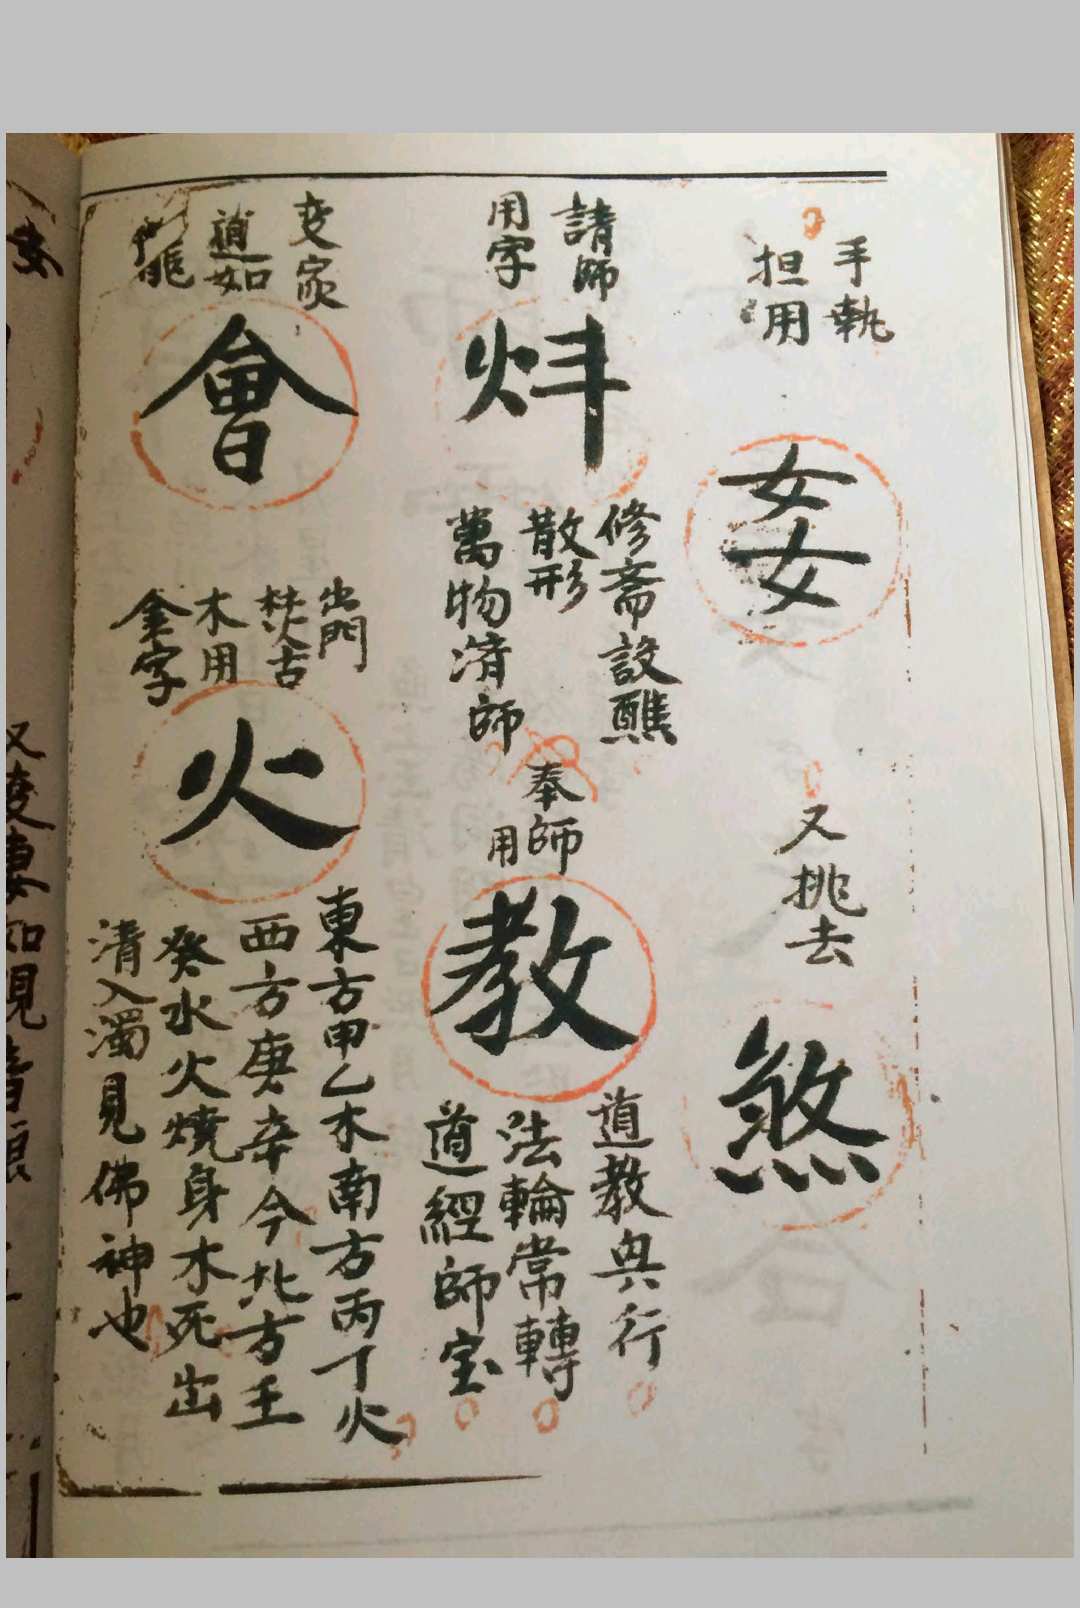 手執
担用
又挑去
煞
請師
用字
炐
修斋設醮
散形
萬物済師
奉師
用
教
道教㒷行
法輪常轉
道經師宝
变家
道如
會
出門
木用
金字
火
東方甲乙木南方丙丁火
西方庚辛今北方壬
癸水火燒身木死出
清入濁見佛神也